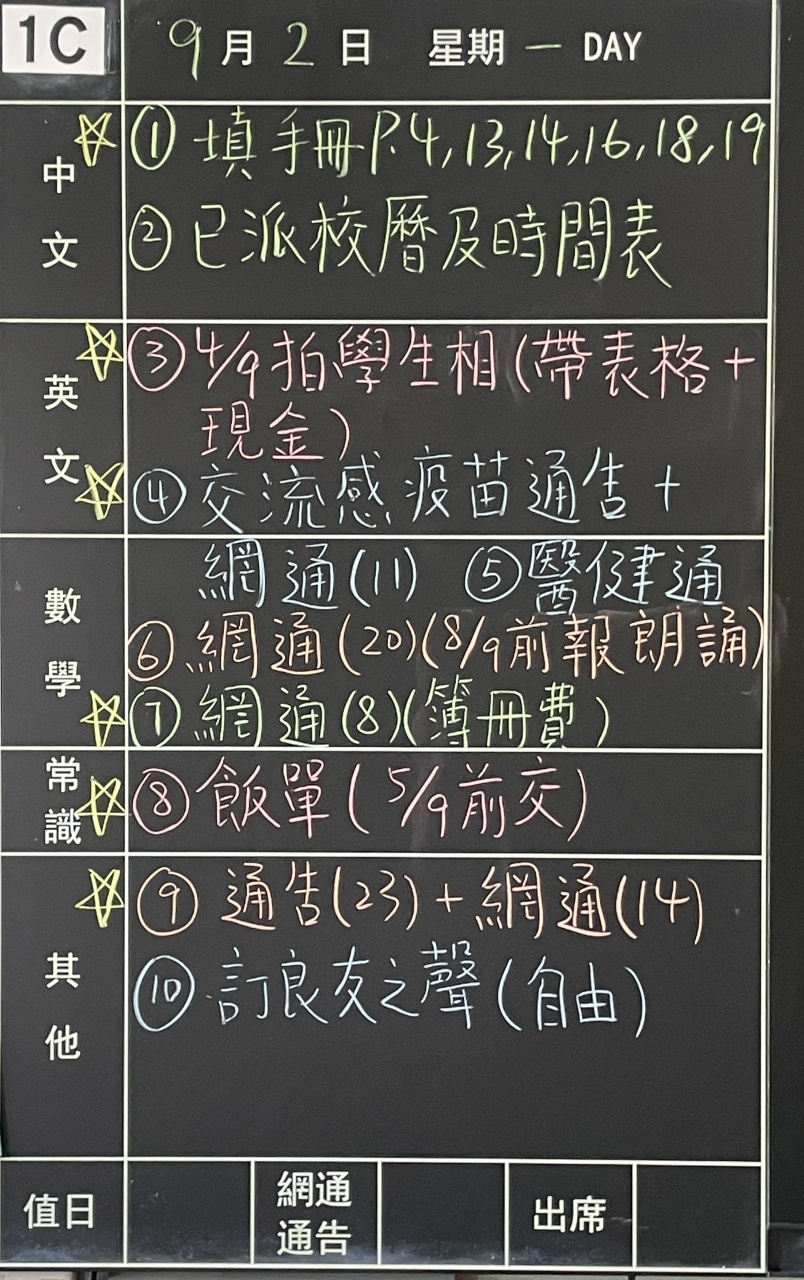 1C 9月2日 星期一 DAY
中文
☆① 填手冊P.4,13,14,16,18,19
② 已派校曆及時間表
英文
☆③ 4/9拍學生相(帶表格+
現金)
☆④ 交流感疫苗通告+
數學
網通(11) ⑤醫健通
⑥ 網通(20)(8/9前報朗誦)
☆⑦ 網通(8)(簿冊費)
常識
☆⑧ 飯單(5/9前交)
其他
☆⑨ 通告(23)+網通(14)
⑩ 訂良友之聲(自由)
值日 網通 出席
通告